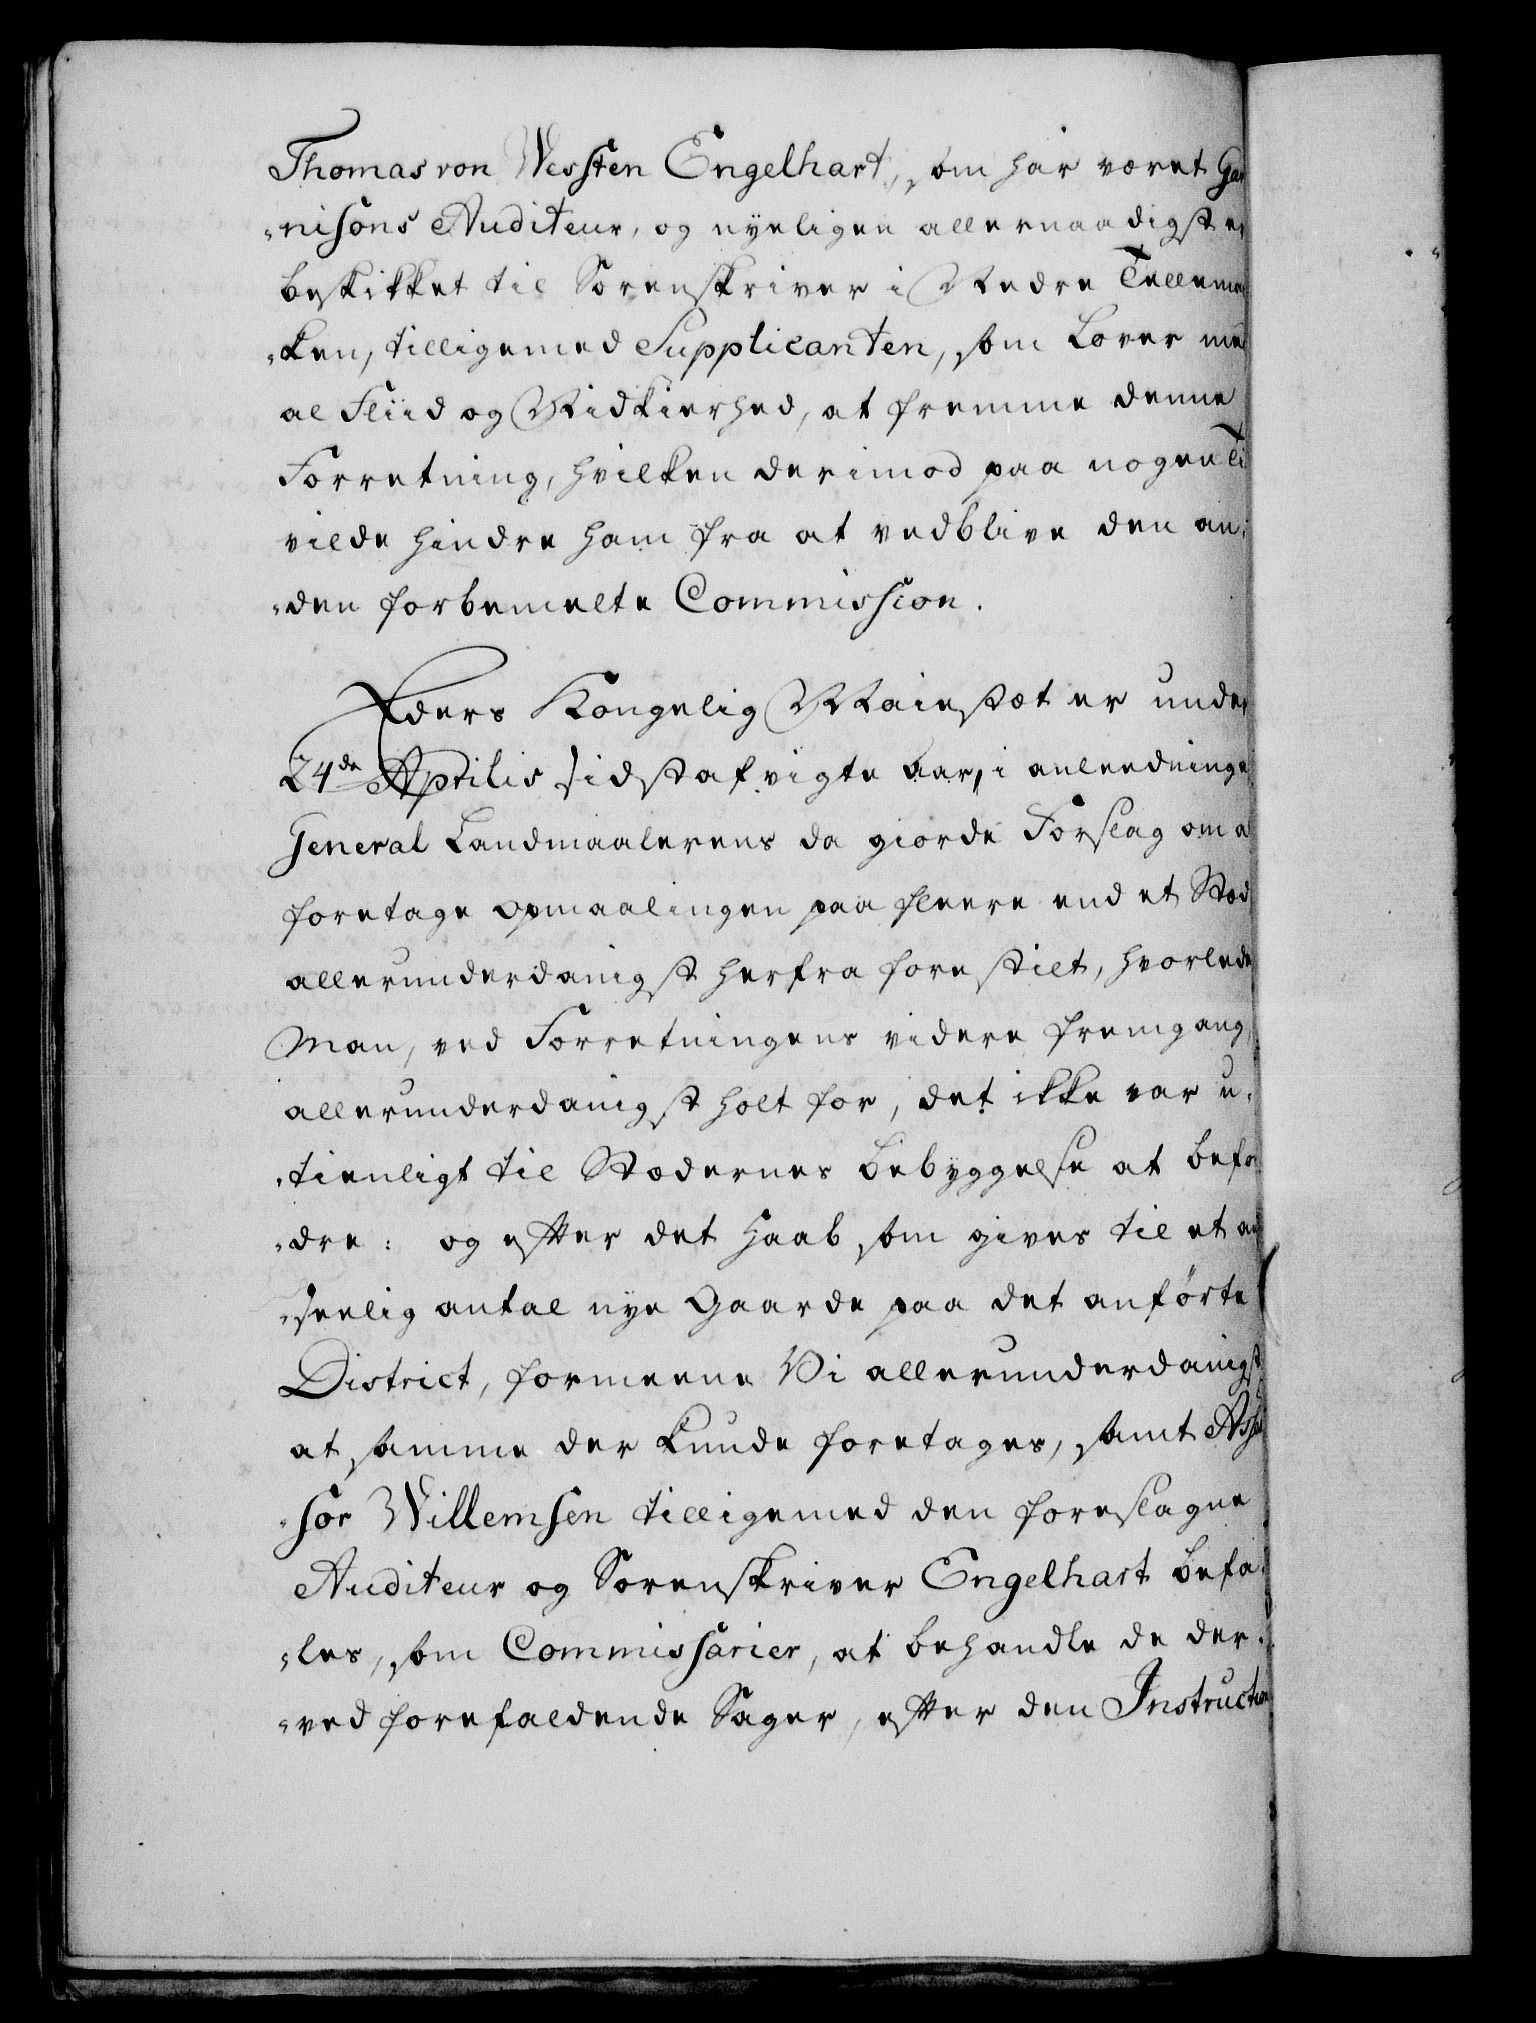 Thomas von Westen Engelhart, som har været Gar
-nisons Auditeur, og nyeligen allernaadigst er
beskikket til Sorenskriver i Nedre Tellemar
-ken, tilligemed Supplicanten, som lover med
al Fliid og Nidkierhed, at fremme denne
Forretning, hvilken derimod paa nogen Ti
vilde hindre ham fra at vedblive den an-
-den forbemelte Commission.
Eders Kongelig Maiestæt er under
24de Aprilis sidst afvigte Aar, i anleedning a
General Landmaalerens da giorde Forslag om a
foretage Opmaalingen paa fleere end et Stæd
allerunderdanigst herfra forestilt, hvorlede
Man, ved Forretningens videre fremgang,
allerunderdanigst holt for, det ikke var u-
-tienligt til Stædernes Bebyggelse at befor
-dre: og efter det Haab som gives til et an
-seelig antal nye Gaarde paa det anførte
District, formeene Vi allerunderdanigst,
at samme der kunde foretages, samt Asses
-sor Willemsen tilligemed den foreslagne
Auditeur og Sorenskriver Engelhart befa-
-les, som Commissarier, at behandle de der-
-ved forefaldende Sager, efter den Instruction